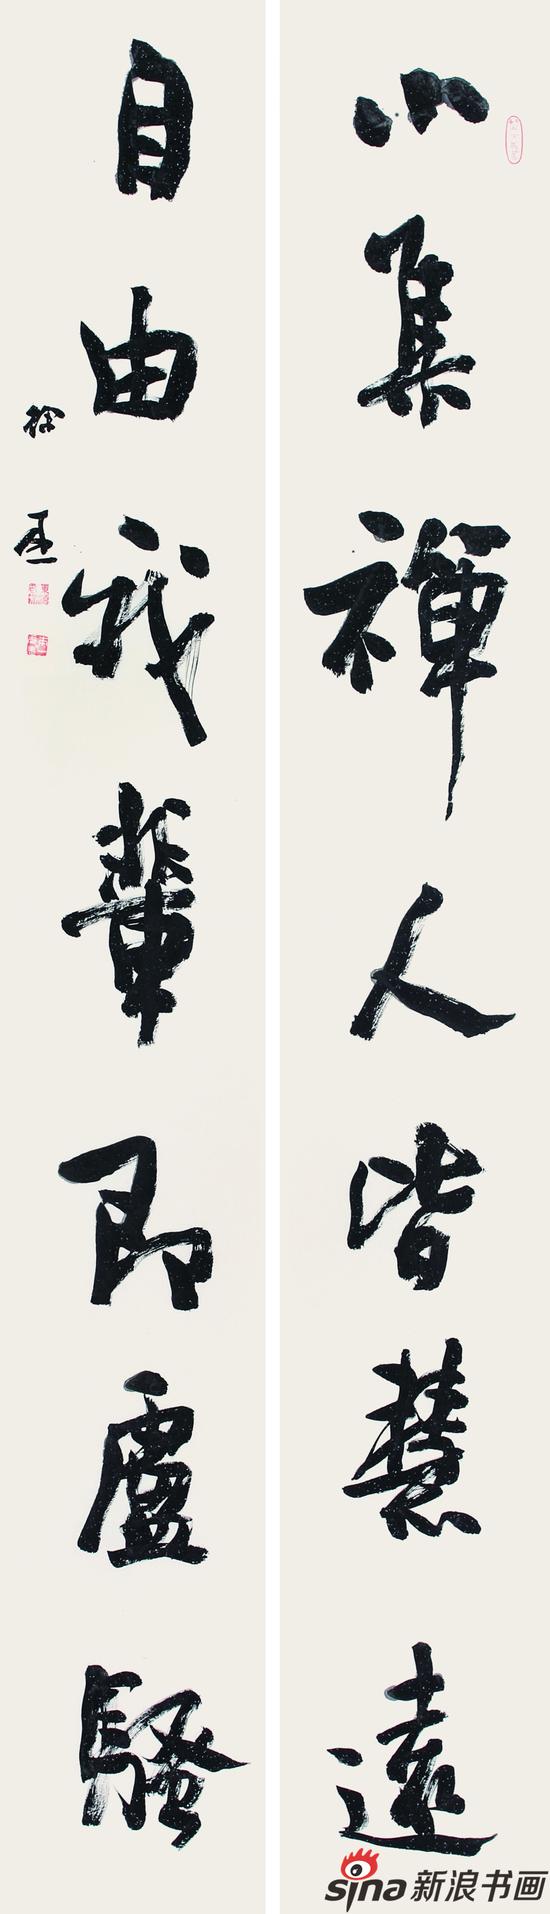 小集禅人皆慧遠
自由我輩即盧騷
徐
sina新浪书画